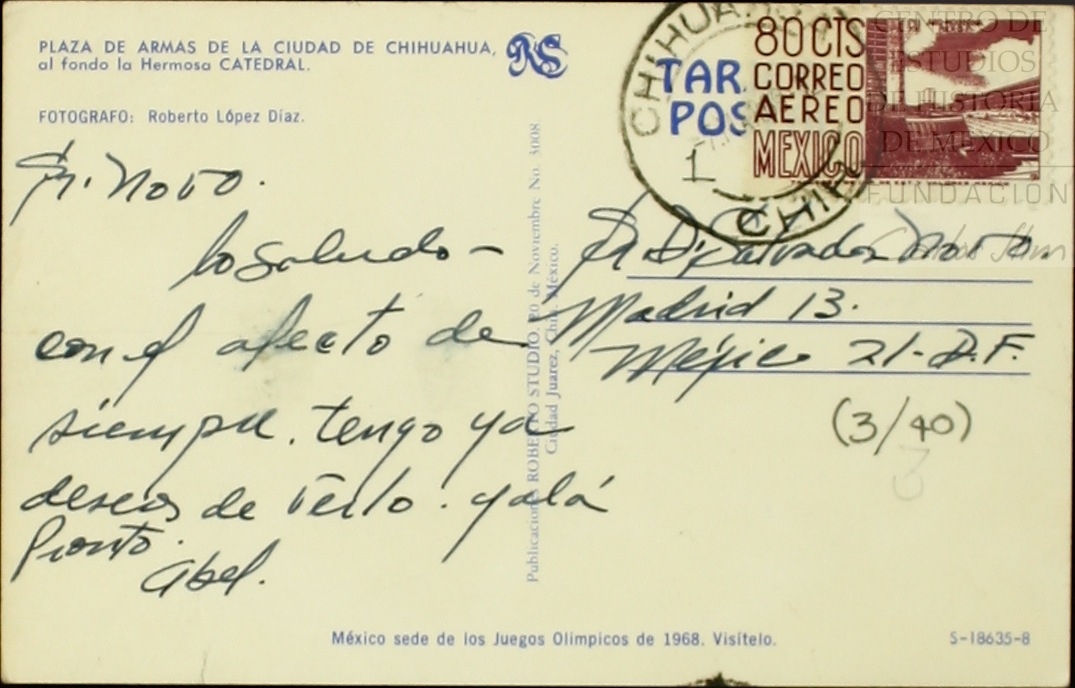 PLAZA DE ARMAS DE LA CIUDAD DE CHIHUAHUA,
al fondo la Hermosa CATEDRAL.
FOTOGRAFO: Roberto López Díaz.
RS
TAR
POS
CHIHUA
CHIH
1
80 CTS
CORREO
AEREO
MEXICO
CENTRO DE
ESTUDIOS
DE HISTORIA
DE MEXICO
FUNDACIÓN
Carlos Slim
Sr. Novo.
lo saludo -
con el afecto de
siempre. tengo ya
deseos de verlo. y alá
Pronto.
Abel.
Publicaciones ROBERTO STUDIO. 20 de Noviembre No. 3008
Ciudad Juarez, Chih. México.
Sr D. Salvador Novo.
Madrid 13.
Méjico 21 - D.F.
(3/40)
México sede de los Juegos Olimpicos de 1968. Visítelo.
S-18635-8